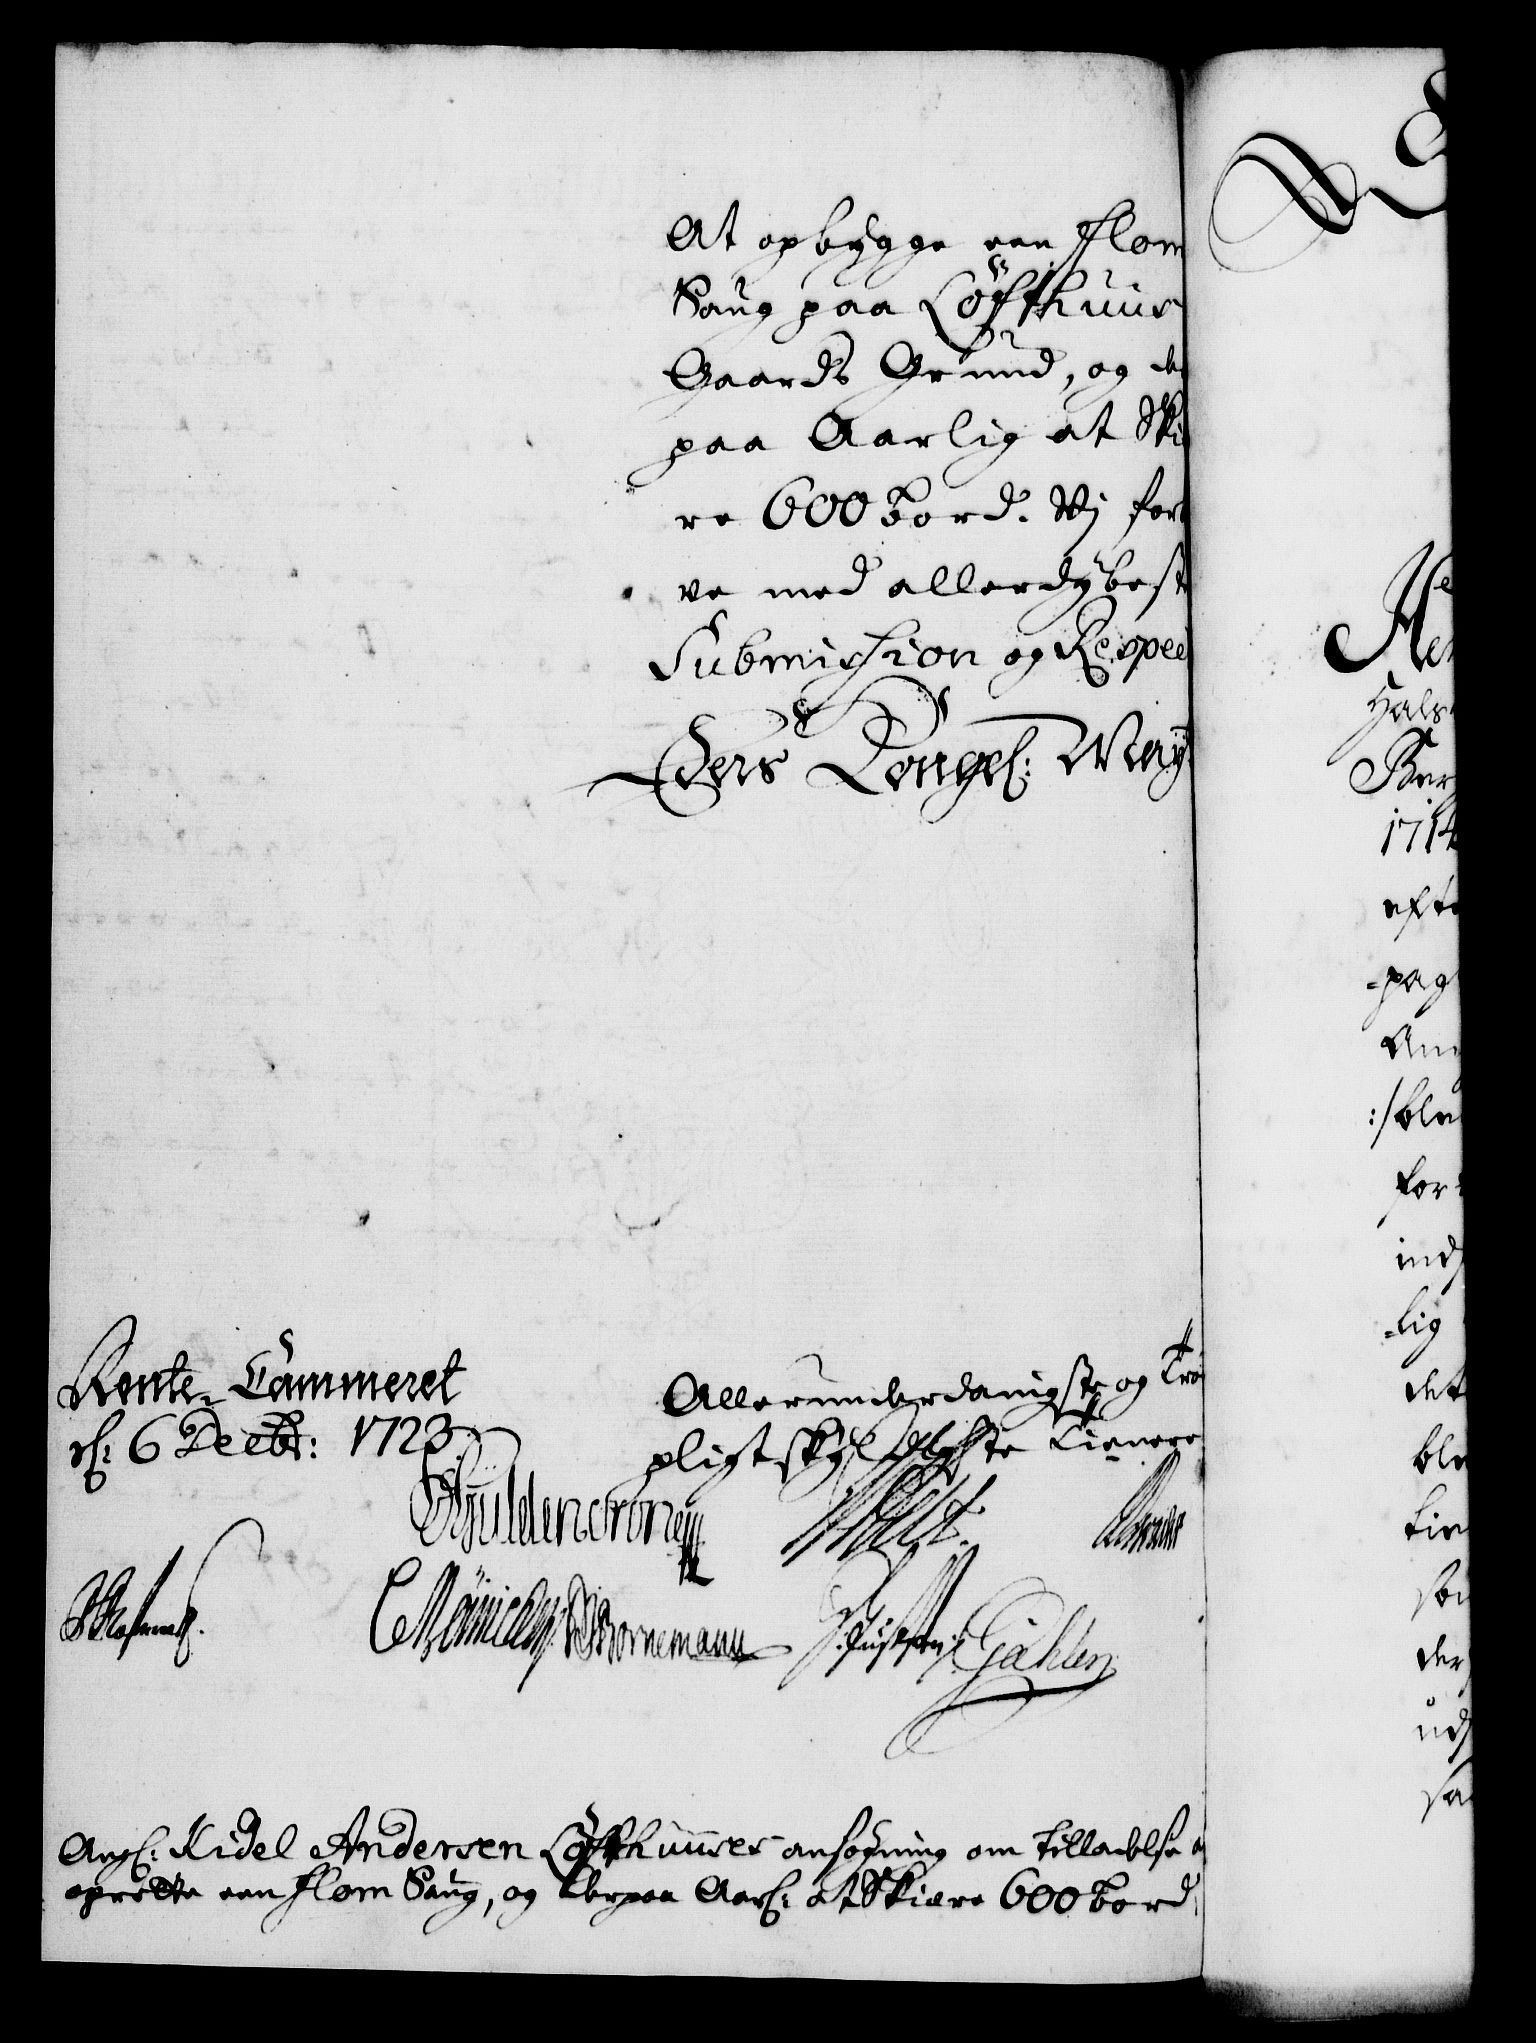 At opbygge een flom
Saug paa Löfthuus
Gaards Grund, og de
paa Aarlig at Ski
re 600 bord. Wj for
ve med allerdybeste
Submission og Respect
Eers Kongel: Mayt
Rente-Cammeret
d: 6 Decbr: 1723
Allerunderdanigste og Tro
pligtskyldigste Tienere
Gyldencrone
CMöinichen
Bornemann
Gähler
Ang: Kidel Andersen Löfthuuses ansögning om tilladelse a
oprette een flom Saug, og derpaa Aarl: at Skiære 600 bord.
Hals
1714
efte
-pag
:/ble
for
ind
-lig
det
ble
tie
so
der
ud
sa